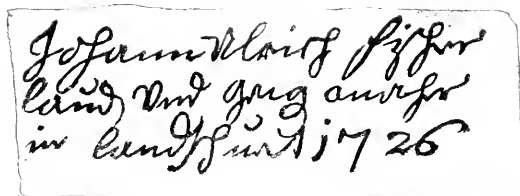 Johann Ulrich Fischer
laud Vnd geig macher
in landshuet 1726